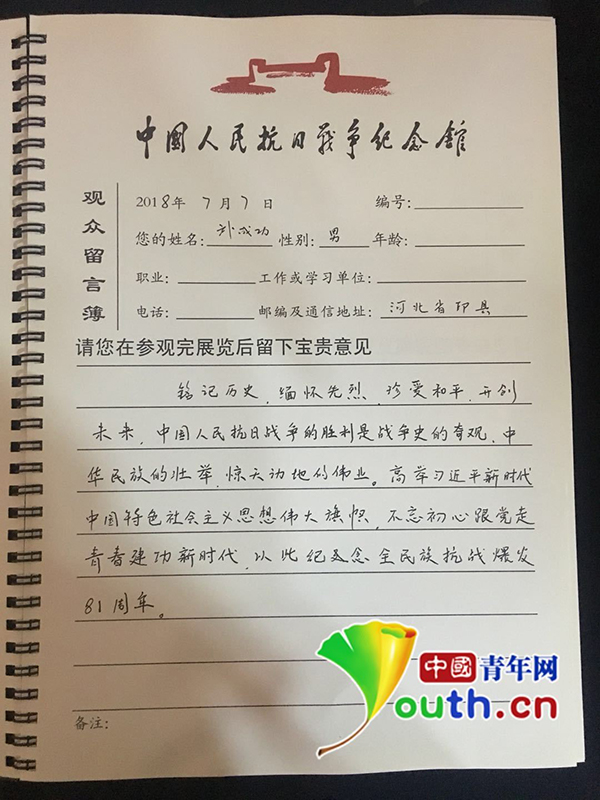 中國人民抗日戰争纪念館
观众留言簿
2018年 7月7日 编号:
您的姓名: 成功 性别: 男 年龄:
职业: 工作或学习单位:
电话: 邮编及通信地址: 河北省
请您在参观完展览后留下宝贵意见
铭记历史,缅怀先烈 珍爱和平,开创
未来,中国人民抗日战争的胜利是战争史的奇观,中
华民族的壮举,惊天动地的伟业。高举习近平新时代
中国特色社会主义思想伟大旗帜,不忘初心跟党走
青春建功新时代,以此纪念全民族抗战爆发
81周年。
备注:
中國青年网
outh.cn